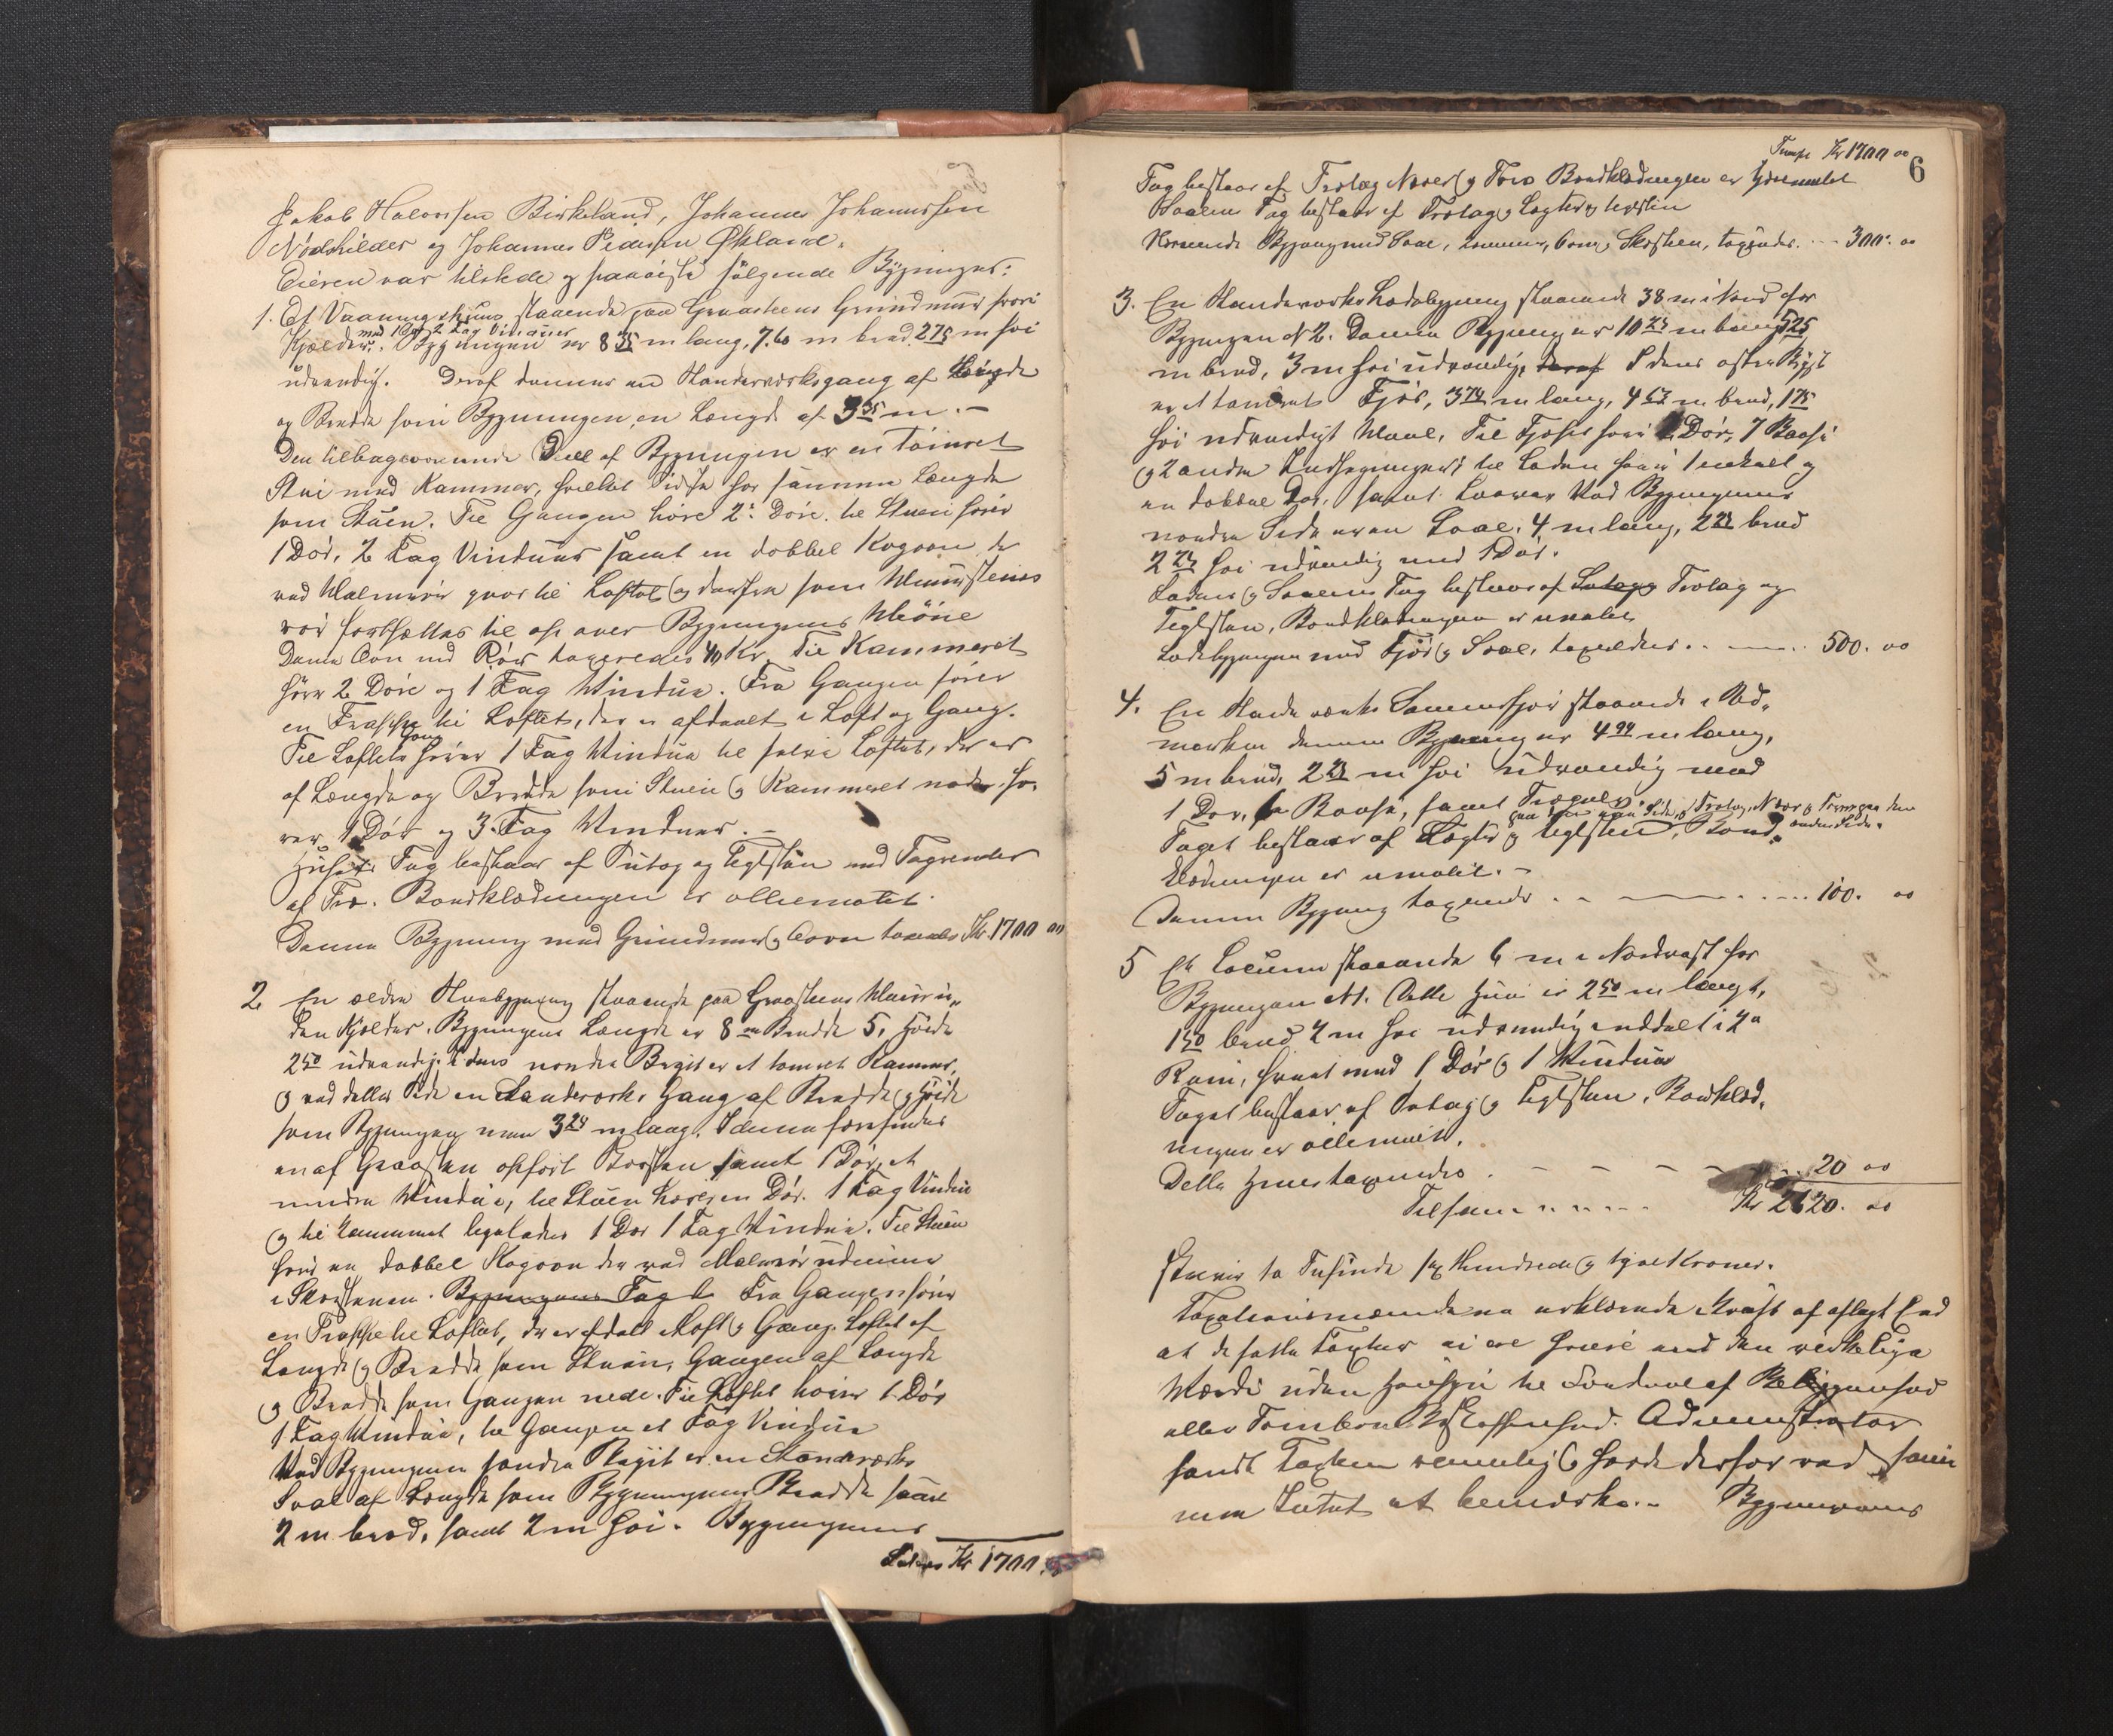 Jakob Halvorsen Birkeland, Johannes Johannessen
Nödskilder og Johannes Pedersen Økland.
Eieren var tilstede og paaviste følgende Bygninger:
1. Et Vaaningshuus staaende paa Graasteens Grundmuur hvori
med 1 Dør 2 Fag Vinduer
Kjelder. Bygningen er 8 35 m lang, 7.60 m bred 2 75 m høi
udvendig. Deraf dannes en Standværksgang af Høigde
og Bredde som Bygningen, en Længde af 3 35 m. -
Den tilbageværende Deel af Bygningen er en tømret
Stue med Kammer, hvilket Sidste har samme Længde
som Stuen. Til Gangen høre 2 Døre. til Stuen hører
1 Dør, 2 Fag Vinduer samt en dobbel Kogeovn der
ved Malmrør gaar til Loftet og derfra som Muursteens
rør fortsættes til op over Bygningens Mønne
Denne Ovn med Rør taxeredes 40 Kr. Til Kammeret
hører 2 Døre og 1 Fag Vindue. Fra Gangen fører
en Trappe til Loftet, der er afdeelt i Loft og Gang.
Gang
Til Lofts hører 1 Fag Vindue til selve Loftet, der er
af Længde og Bredde som Stuen og Kammeret nede, hø-
rer 1 Dør og 3 Fag Vinduer. -
Husets Tag bestaar af Sutag og Teglsten med Tagrender
af Træ. Bordklædningen er olliemalet.
Denne Bygning med Grundmur og Ovn taxeredes Kr. 1700 00
2 En ældre Stuebygning staaende paa Graasteens Muur u-
den Kjelder. Bygningens Længde er 8 m Bredde 5, Høide
2 50 udvendig. I dens nordre Bygst er et tømret Kammer,
og ved dettes Side en Standværks Gang af Bredde og Høide
som Bygningen men 3 24 m lang. I denne forefindes
en af Graasten opført Skorsten samt 1 Dør, et
mindre Vindue, til Stuen hører en Dør. 1 Fag Vindue
og til Kammeret ligeledes 1 Dør 1 Fag Vindue. Til Stuen
hører en dobbel Kogeovn der ved Malmrør udmunder
i Skorstenen. Bygningens Tag b Fra Gangen fører
en Trappe til Loftet, der er afdelt i Loft og Gang. Loftet af
Længde og Bredde som Stuen, Gangen af Længde
og Bredde som Gangen nede. Til Loftet hører 1 Dør
1 Fag Vindue, til Gangen et Fag Vindue
Ved Bygningens søndre Bygst er en Standværks
Sval af Længde som Bygningens Bredde samt
2 m bred, samt 2 m høi. Bygningens
Kr 1700.
Kr 1700 00
6
Tag bestaar af Trolag Næver og Torv Bordklædningen er
Svalens Tag bestaar af Trolag, Lægter og teglsten
Bygning med Sval, Kammer, Ovn, Skorsten, taxeredes. --- 300. 00
3. En Standværks Ladebygning staaende 38 m i Nord for
Bygningen N 2. Denne Bygning er 10 25 m lang 5 25
m bred, 3 m høi udvendig, deraf I dens østre Bygst
er et tømret Fjøs, 3 74 m lang, 4 67 m bred, 1 75
høi udvendigt Maal. Til Fjøset hører 2 Dør, 7 Baase
og 2 andre Indhegninger; til Laden hører 1 enkelt og
en dobbel Dør, samt Laaver Ved Bygningens
nordre Side er en Sval, 4 m lang, 2 23 bred
2 24 høi udvendig med 1 Dør.
Ladens og Svalens Tag bestaar af Sutagg Trolag og
Teglsten, Bordklædningen er umalet
Ladebygningen med Fjøs og Sval, taxeredes. . ---- . 500. 00
4. En Standværks Sommerfjøs staaende i Ud-
marken denne Bygning er 4 94 m lang,
5 m bred, 2 23 m høi udvendig med
1 Dør, 6 Baase, samt Trægulv.
paa den ene Side, af Trolag, Næver og Torv paa den
anden Side.
Taget bestaar af Lægter og teglsten, Bord-
klædningen er umalet. -
Denne Bygning taxeredes . - ---- . . . . 100. 00
5 Et Locum staaende 6 m i Nordvest for
Bygningen N 1. Dette Huus er 2 50 m langt,
1 50 bred 2 m høi udvendig inddelt i 2
Rum, hvert med 1 Dør og 1 Vindue
Taget bestaar af Sutag og teglsten. Bordklæd-
ningen er olliemalt.
Dette Huus taxeredes . - - - - - . 20 00
Tilsam - - - - - - Kr 2620. 00
skriver to Tusinde sex Hundrede og tyve Kroner.
Taxationsmændene erklærede i Kraft af aflagt Eed
at de satte Taxter ei ere høiere end den virkelige
Værdi uden Hensyn til Sondwal af Beliggenhed
eller Tomtens Beskaffenhed. Administrator
fandt Taxten rimelig og havde derfor ved samme
men Intet at bemærke. - Bygningens